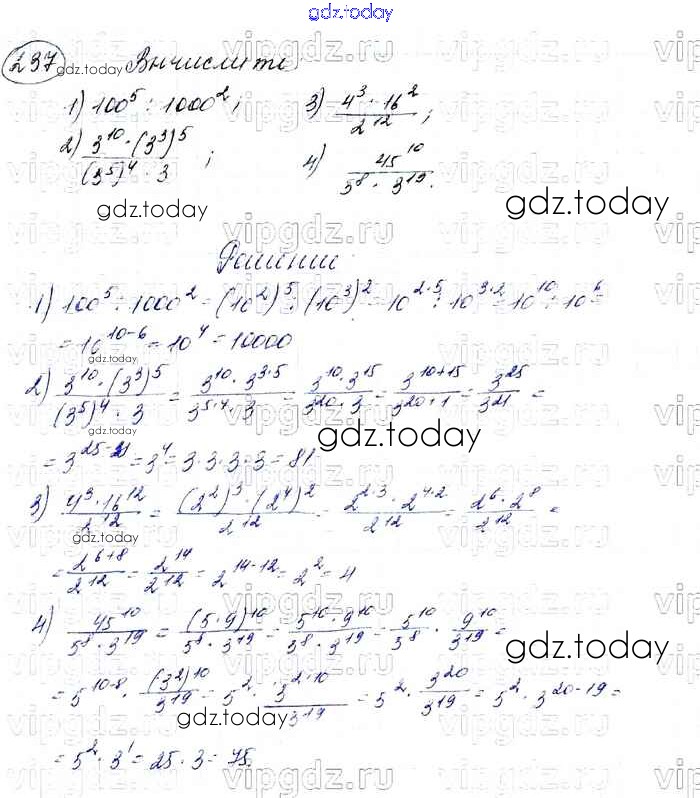 gdz.today
237 Вычислите:
1) 100^5 : 1000^2; 3) (4^3 · 16^2)/(2^12);
2) (3^10 · (3^3)^5)/((3^5)^4 · 3); 4) (45^10)/(5^8 · 3^19).
Решение:
1) 100^5 : 1000^2 = (10^2)^5 : (10^3)^2 = 10^(2·5) : 10^(3·2) = 10^10 : 10^6 =
= 10^(10-6) = 10^4 = 10000
2) (3^10 · (3^3)^5)/((3^5)^4 · 3) = (3^10 · 3^(3·5))/(3^(5·4) · 3) = (3^10 · 3^15)/(3^20 · 3) = (3^(10+15))/(3^(20+1)) = (3^25)/(3^21) =
= 3^(25-21) = 3^4 = 3·3·3·3 = 81
3) (4^3 · 16^12)/(2^12) = ((2^2)^3 · (2^4)^2)/(2^12) = (2^(2·3) · 2^(4·2))/(2^12) = (2^6 · 2^8)/(2^12) =
= (2^(6+8))/(2^12) = (2^14)/(2^12) = 2^(14-12) = 2^2 = 4
4) (45^10)/(5^8 · 3^19) = ((5·9)^10)/(5^8 · 3^19) = (5^10 · 9^10)/(5^8 · 3^19) = (5^10)/(5^8) · (9^10)/(3^19) =
= 5^(10-8) · ((3^2)^10)/(3^19) = 5^2 · (3^(2·10))/(3^19) = 5^2 · (3^20)/(3^19) = 5^2 · 3^(20-19) =
= 5^2 · 3^1 = 25 · 3 = 75.
gdz.today
vipgdz.ru